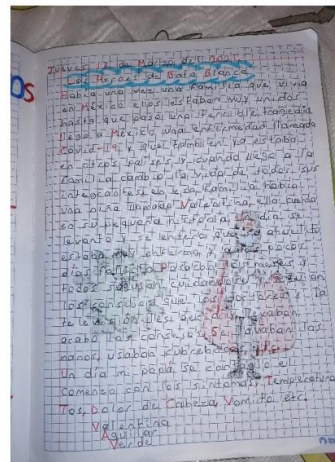 OS
Jueves 12 de Marzo del 2021
Los Heroes de Bata Blanca
Había una vez una Familia que vivía
en México ellos estaban muy unidos
hasta que pasó una Terrible tragedia
llego a México una enfermedad llamada
Covid-19 y que también ya estaba
en otros países y cuando llego a la
Familia cambio la vida de todos sus
integrantes en esa Familia había
una niña llamada Valentina, ella cuenta
en su pequeña historia, Un día se
levanto y se entero que su abuelito
estaba muy enfermo y a los pocos
días Pasaron
todos seguían cuidandose seguían
los consejos que los doctores y la
televisión les
los consejos lavaban las
manos, usaban cubrebocas
Un día mi papá se contagio e
comenzo con los síntomas Temperatura
Tos, Dolor de Cabeza, Vomito etc.
Valentina
Aguilar
Verde